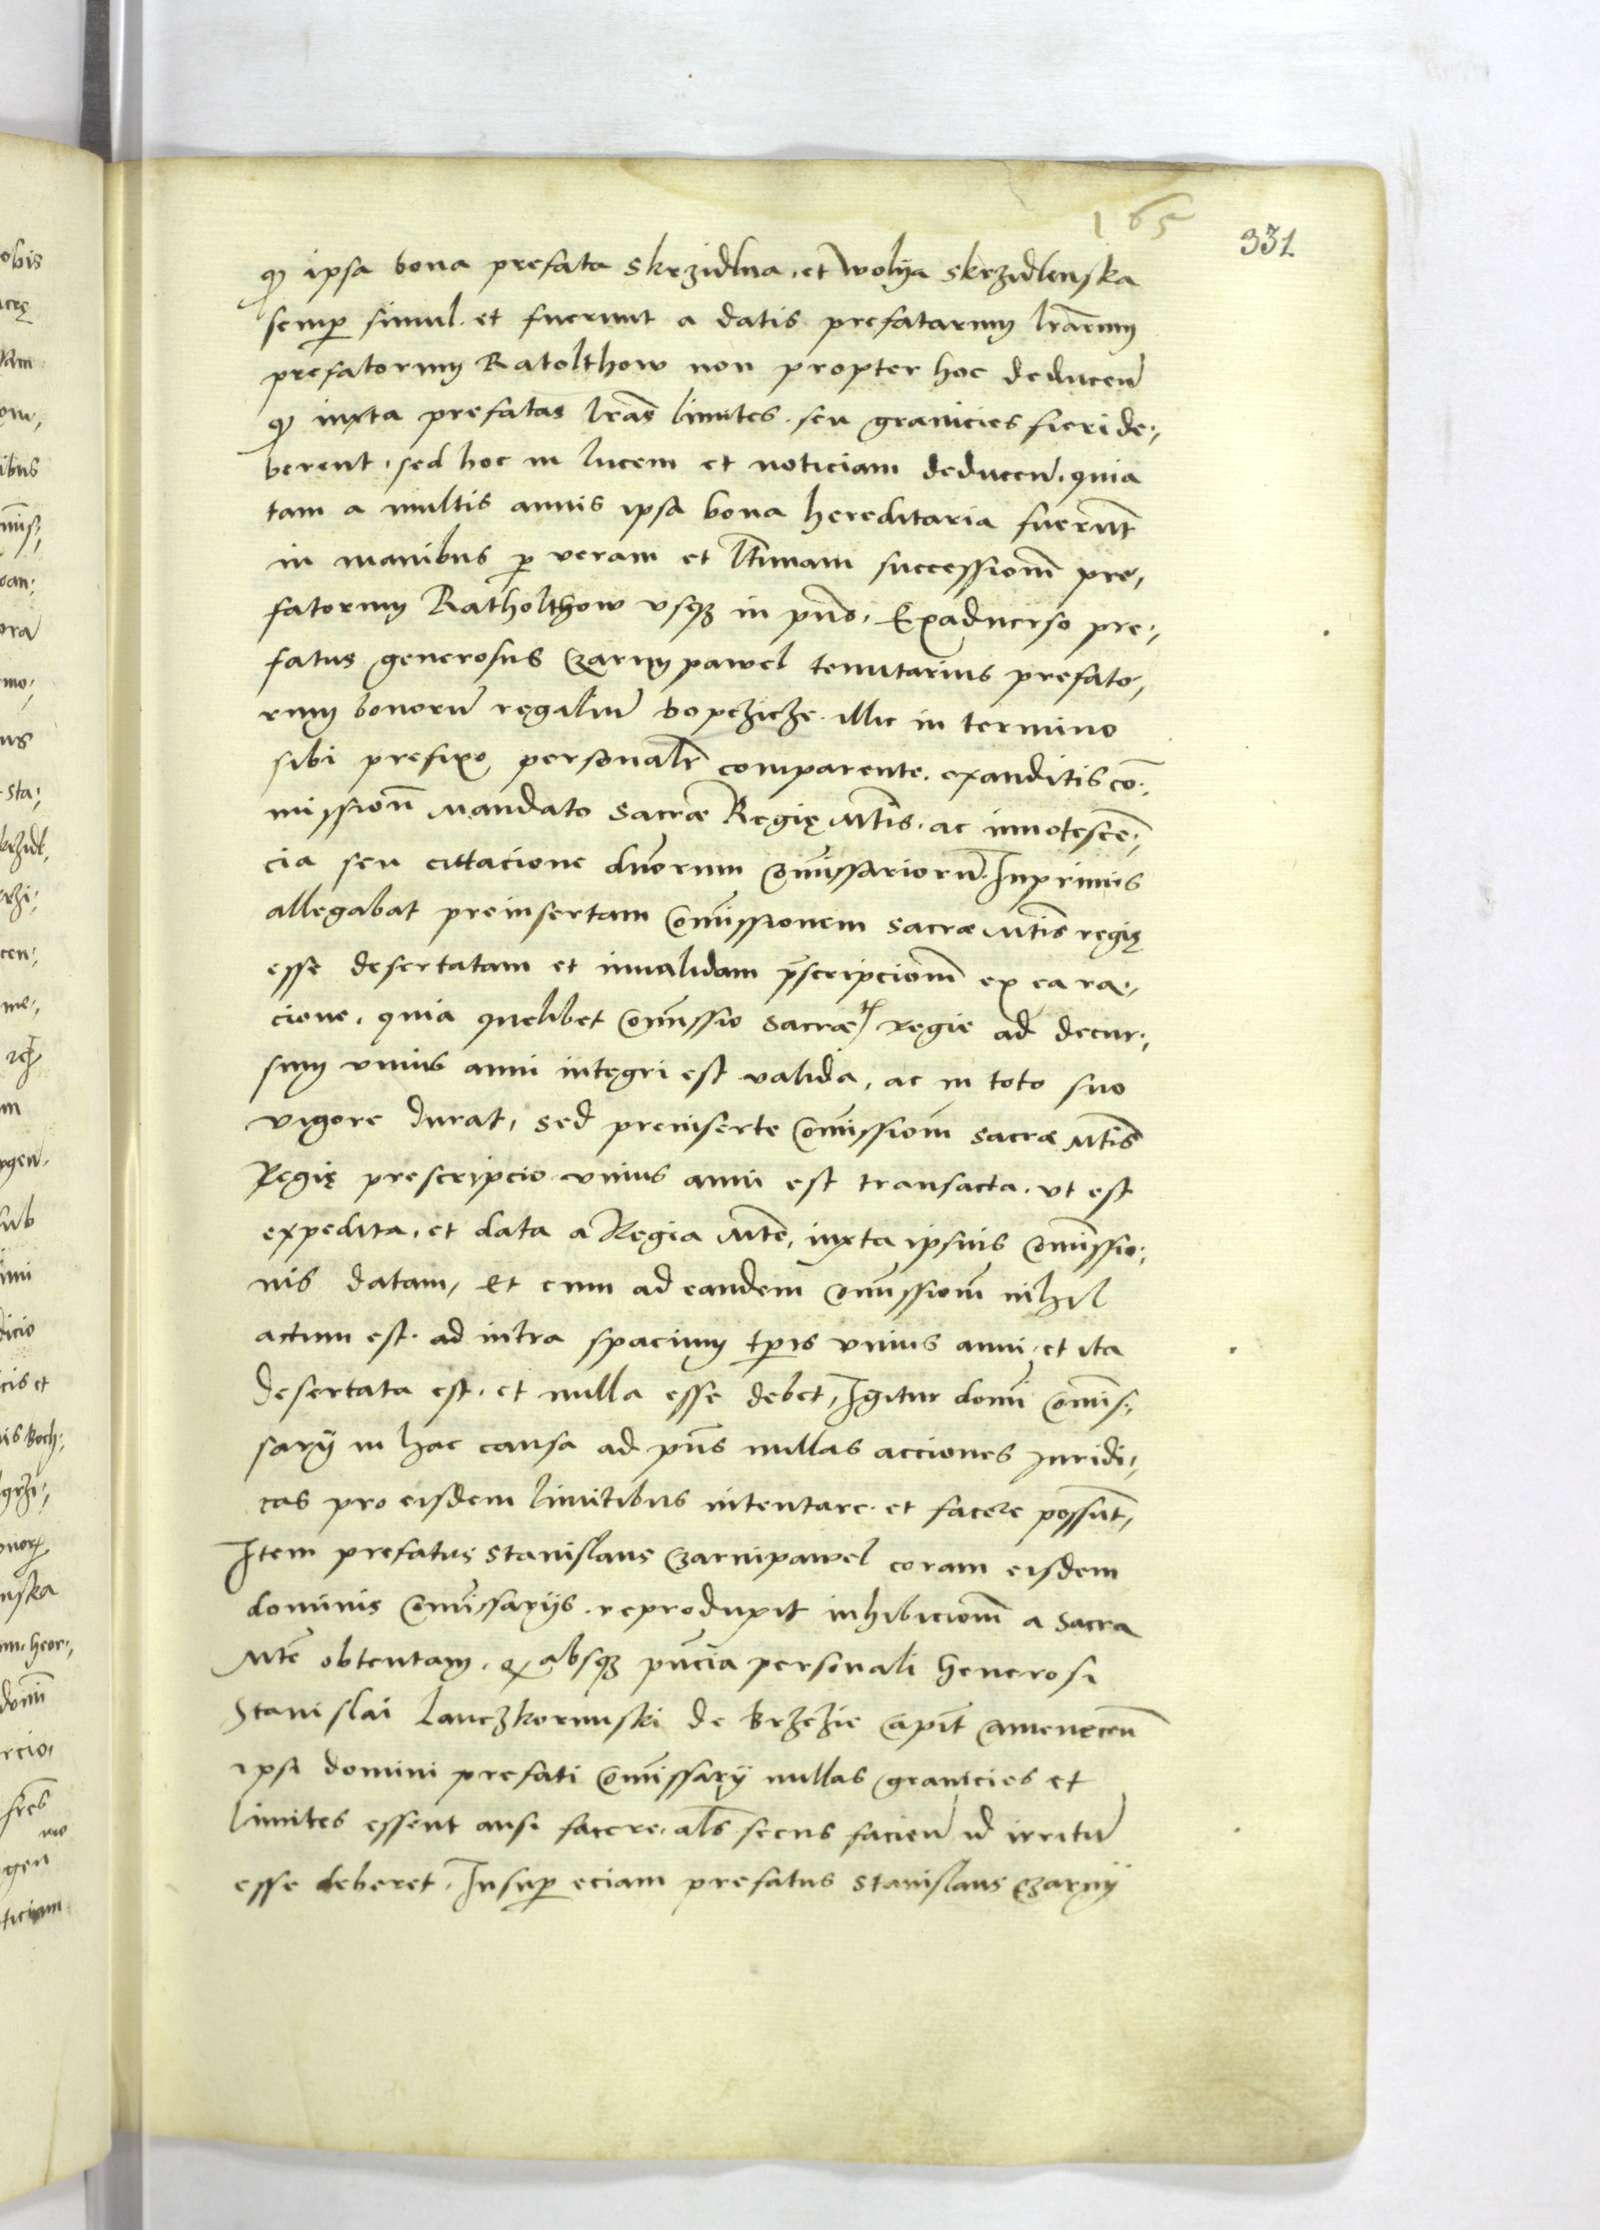 165
331
qȝ ipsa bona prefata Skrzidlna, et Wolya Skrzidlenska
semꝑ simul. et fuerunt a datis prefatarum lr̃arum
prefatorum Ratolthow non propter hoc deducen̄
qȝ iuxta prefatas lr̃as limites. seu granicies fieri de⸗
berent, sed hoc in lucem et noticiam deducen̄. quia
tam a multis annis ipsa bona hereditaria fuerūt
in manibus ꝑ veram et lt̃imam successionem̄ pre⸗
fatorum Ratholthow vsqȝ in pn̄s, Exaduerso pre⸗
fatus generosus Czarny pawel tenutarius prefato⸗
rum bonorū regaliū Dopczicze. illic in termino
sibi prefixo personalr̃ comparente. exauditis cō⸗
mission̄ mandato Sacræ Regię Mt̃is. ac innotescē⸗
cia seu cittacione duorum Com̄issariorū. Inprimis
allegabat preinsertam Com̄issionem Sacræ Mt̃is regię
esse desertatam et inualidam p̄scripcionem̄ ex ea ra⸗
cione, quia quelibet Com̄issio Sacræ regie ad decur⸗
sum vnius anni integri est valida, ac in toto suo
vigore durat, sed preinserte Com̄issionis̄ Sacræ Mt̃is
Regię prescripcio vnius anni est transacta. vt est
expedita, et data a Regia Mt̃e, iuxta ipsius Com̄issio⸗
nis datam, Et cum ad eandem Com̄issionem̄ nihil
actum est. ad intra spacium tp̄ris vnius anni. et ita
desertata est, et nulla esse debet, Igitur domī Com̄is⸗
sarij in hac causa ad pn̄s nullas acciones Iuridi⸗
cas pro eisdem limitibus intentare. et facere possūt,
Item prefatus Stanislaus Czarnipawel coram eisdem
dominis Com̄issarijs. reproduxit inhibicionem̄ a Sacra
Mt̃e obtentam, qȝ absqȝ pn̄cia personali Generosi
Stanislai Lanczkorunski de Brzezie Capit̄ Camenecen̄
ipsi domini prefati Com̄issarij nullas granicies et
limites essent ausi facere, al̃s secus facien̄ id irritū
esse deberet, Insuꝑ eciam prefatus Stanislaus Czarny